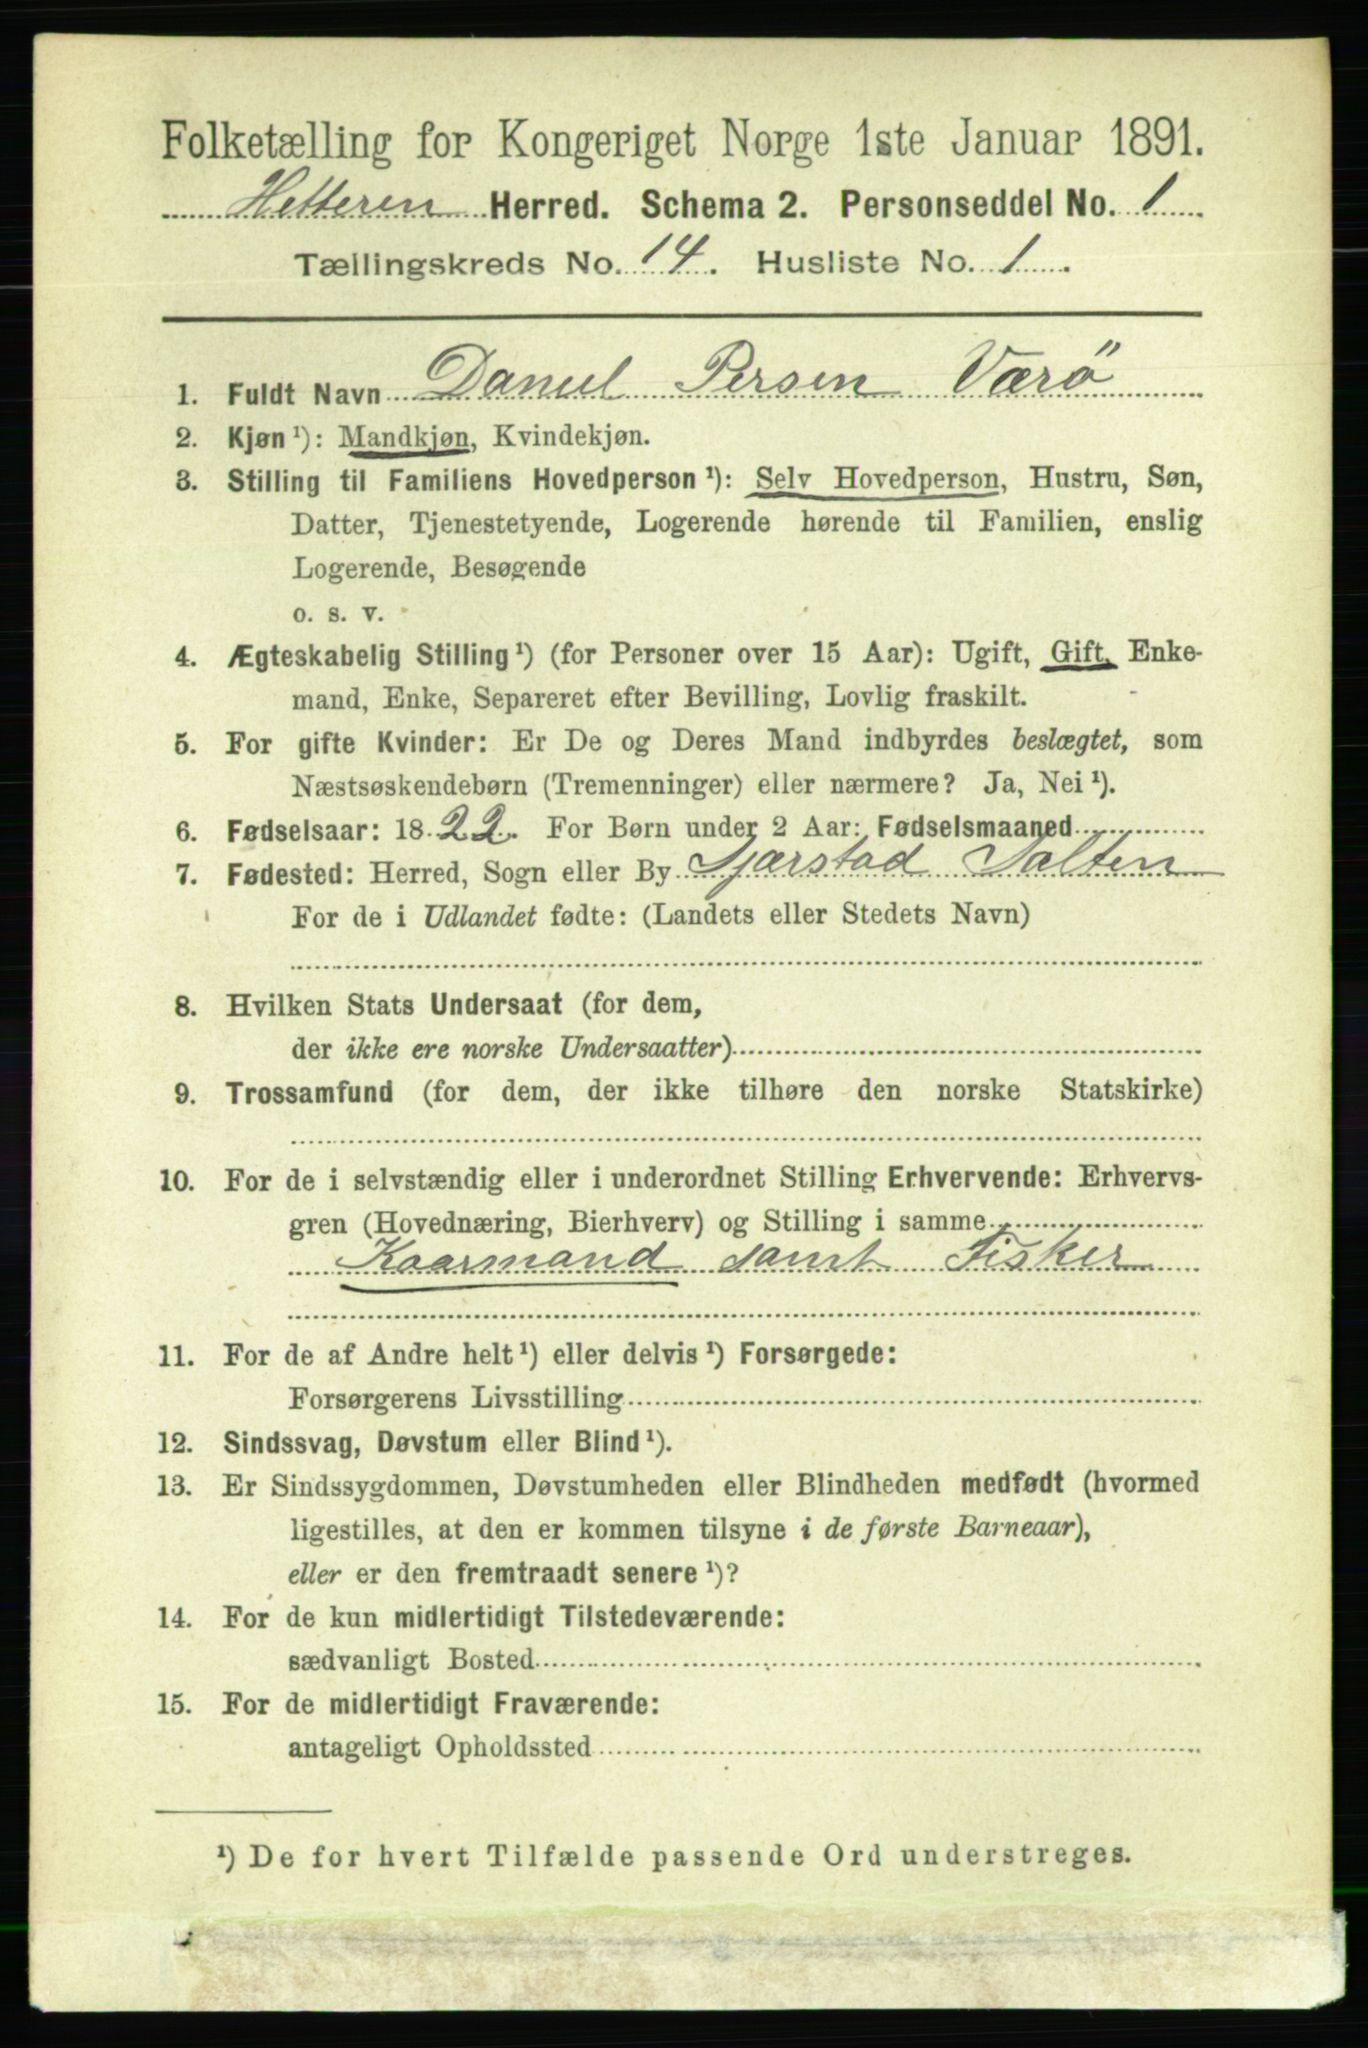 Folketælling for Kongeriget Norge 1ste Januar 1891.
Hitteren Herred. Schema 2. Personseddel No. 1
Tællingskreds No. 14. Husliste No. 1.
1. Fuldt Navn Daniel Persen Værö
2. Kjøn ¹): Mandkjøn, Kvindekjøn.
3. Stilling til Familiens Hovedperson ¹): Selv Hovedperson, Hustru, Søn,
Datter, Tjenestetyende, Logerende hørende til Familien, enslig
Logerende, Besøgende
o. s. v.
4. Ægteskabelig Stilling ¹) (for Personer over 15 Aar): Ugift, Gift, Enke-
mand, Enke, Separeret efter Bevilling, Lovlig fraskilt.
5. For gifte Kvinder: Er De og Deres Mand indbyrdes beslægtet, som
Næstsøskendebørn (Tremenninger) eller nærmere? Ja, Nei ¹).
6. Fødselsaar: 1822. For Børn under 2 Aar: Fødselsmaaned
7. Fødested: Herred, Sogn eller By Sjærstad Salten
For de i Udlandet fødte: (Landets eller Stedets Navn)
8. Hvilken Stats Undersaat (for dem,
der ikke ere norske Undersaatter)
9. Trossamfund (for dem, der ikke tilhøre den norske Statskirke)
10. For de i selvstændig eller i underordnet Stilling Erhvervende: Erhvervs-
gren (Hovednæring, Bierhverv) og Stilling i samme
Kaarmand samt Fisker
11. For de af Andre helt ¹) eller delvis ¹) Forsørgede:
Forsørgerens Livsstilling
12. Sindssvag, Døvstum eller Blind ¹).
13. Er Sindssygdommen, Døvstumheden eller Blindheden medfødt (hvormed
ligestilles, at den er kommen tilsyne i de første Barneaar),
eller er den fremtraadt senere ¹)?
14. For de kun midlertidigt Tilstedeværende:
sædvanligt Bosted
15. For de midlertidigt Fraværende:
antageligt Opholdssted
¹) De for hvert Tilfælde passende Ord understreges.